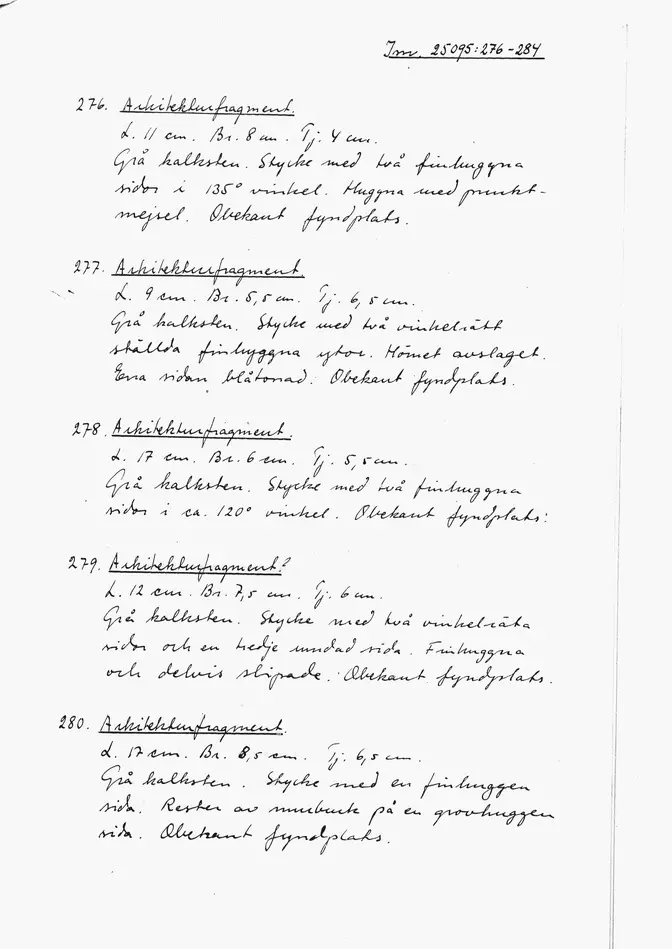 Inv. 25095:276-284
276. Arkitekturfragment.
L. 11 cm. Br. 8 cm. Tj. 4 cm.
Grå kalksten. Stycke med två finhuggna
sidor i 135° vinkel. Huggna med punkt-
mejsel. Obekant fyndplats.
277. Arkitekturfragment.
L. 9 cm. Br. 5,5 cm. Tj. 6,5 cm.
Grå kalksten. Stycke med två vinkelrätt
ställda finhuggna ytor. Hörnet avslaget.
Ena sidan blåtonad. Obekant fyndplats.
278. Arkitekturfragment.
L. 17 cm. Br. 6 cm. Tj. 5,5 cm.
Grå kalksten. Stycke med två finhuggna
sidor i ca. 120° vinkel. Obekant fyndplats.
279. Arkitekturfragment?
L. 12 cm. Br. 7,5 cm. Tj. 6 cm.
Grå kalksten. Stycke med två vinkelräta
sidor och en tredje rundad sida. Finhuggna
och delvis slipade. Obekant fyndplats.
280. Arkitekturfragment.
L. 17 cm. Br. 8,5 cm. Tj. 6,5 cm.
Grå kalksten. Stycke med en finhuggen
sida. Rester av murbruk på en grovhuggen
sida. Obekant fyndplats.